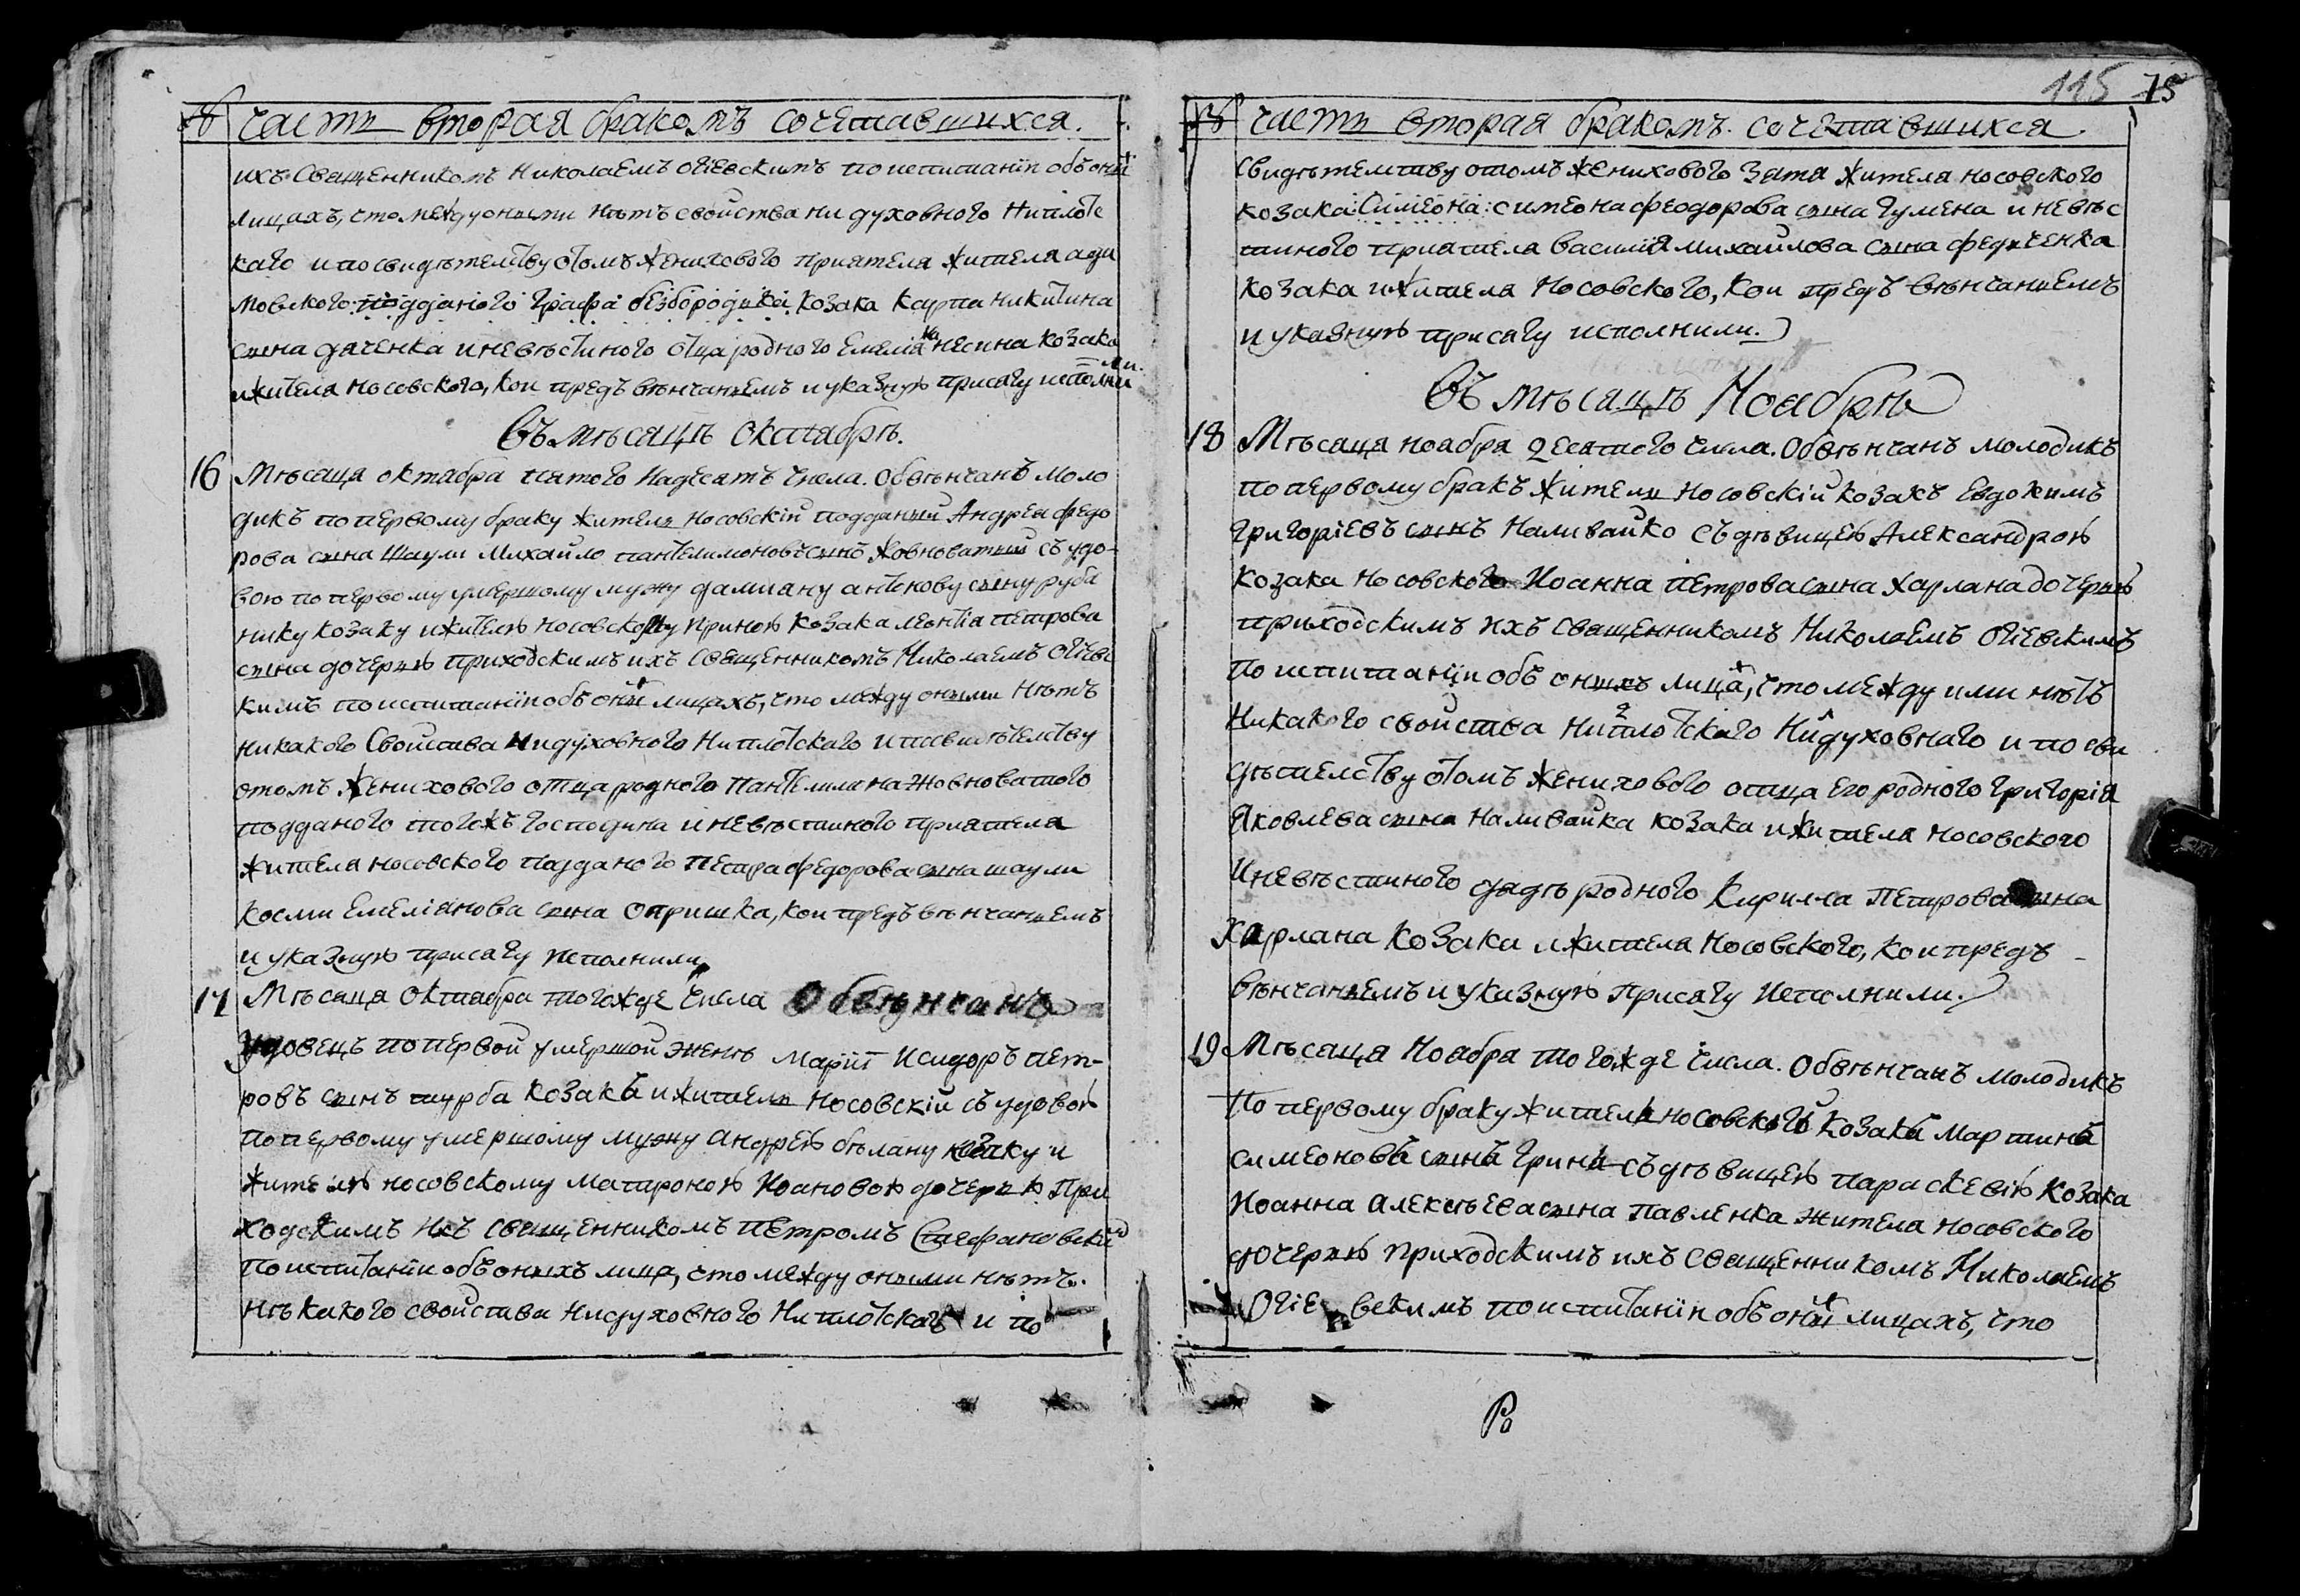 № часть вторая бракомъ сочетавшихся.
ихъ Священникомъ Николаемъ Огіевскимъ по испитаніи объ оних
лицахъ, что между оними нѣтъ свойства ни духовного ни плотс
каго и по свидѣтелству отомъ женихового приятеля жителя ади
мовского: подданого графа безбородка: козака Карпа Никитина
сына дяченка и невѣстиного отца родного Емеліана несина козака
и жителя Носовского, кои предъ вѣнчаніемъ и указную присягу исполни
ли.
Въ мѣсяцѣ октябрѣ.
16 Мѣсяца октября пятого надесять числа. Обвѣнчанъ моло
дикъ по первому браку житель носовскій подданый Андрея федо
рова сына Шаули Михайло пантелимоновъ сынъ Жовноватый съ удо-
вою по первому умершому мужу дамиану антонову сыну руба
нику козаку и жителю носовскому Ириною козака леонтія петрова
сына дочерью приходскимъ ихъ священникомъ Николаемъ Огіевс
кимъ по испитаніи объ оних лицахъ, что между оними нѣтъ
никакого Свойства ни духовного ни плотского и посвидѣтелству
отомъ женихового отца родного Пантелимона Жовноватого
подданого тогожъ господина и невѣстиного приятеля
жителя носовского подданого Петра федорова сына шаули
космы Емеліянова сына Опришка, кои предъ вѣнчаниемъ
и указную присягу исполнили
17 Мѣсяца Октября тогожде числа Обвѣнчанъ
Удовецъ по первой умершой женѣ Маріи Исидоръ пет-
ровъ сынъ турба козакъ и житель Носовскій съ удовою
по первому умершому мужу андрею бѣлану козаку и
жителю носовскому Матроною Иоановою дочерью При
ходскимъ ихъ священникомъ Петромъ Стефановским
по испитаніи объ онихъ лица, что между оними нѣтъ.
нѣкакого свойства ни духовного ни плотского и по
115 75
№ часть вторая бракомъ. сочетавшихся.
свидѣтелству отомъ женихового зятя жителя носовского
козака: Симеона: симеона феодорова сына Гумена и невѣс
тиного приятеля василия михайлова сына федченка
козака и жителя Носовского, кои предъ вѣнчаниемъ
и указную присягу исполнили.
Въ мѣсяцѣ Ноябрѣ
18 Мѣсяца ноября десятого числа. Обвѣнчанъ молодикъ
по первому бракъ житель носовскій козакъ Евдокимъ
григоріевъ сынъ Наливайко съ дѣвицею Александрою
козака носовского Иоанна петрова сына Харлана дочерью
приходскимъ ихъ священникомъ Николаемъ Огіевскимъ
по испитаніи объ онихъ лицах, что между ими нѣтъ
никакого свойства ни плотского ни духовного и по сви
дѣтелству отомъ женихового отца его родного григорія
Яковлева сына Наливайка козака и жителя носовского
и невѣстиного дядѣ родного Кирила Петрова сына
Харлана козака и жителя Носовского, кои предъ
вѣнчаниемъ и указную присягу исполнили.
19 Мѣсяца Ноября тогожде числа. Обвѣнчанъ молодикъ
по первому браку житель носовскій козакъ Мартинъ
симеоновъ сынъ Гринь съ дѣвицею параскевію козака
Иоанна алексѣева сына Павленка жителя носовского
дочерью приходскимъ ихъ священникомъ Николаемъ
Огіевскимъ по испитаніи объ оних лицахъ, что